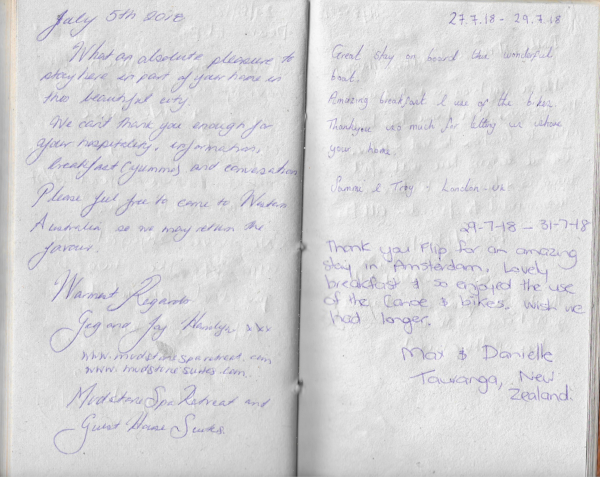 July 5th 2018
What an absolute pleasure to
stay here in part of your home in
this beautiful city
We can't thank you enough for
your hospitality, information,
breakfast (yummo) and conversation
Please feel free to come to Western
Australia so we may return the
favour.
Warmest Regards
Greg and Joy xxx
www.mudstonesparetreat.com
www.mudstonesuites.com
Mudstone Spa Retreat and
Guest House Suites.
27.7.18 - 29.7.18
Great stay on board this wonderful
boat.
Amazing breakfast & use of the bikes.
Thankyou very much for letting us share
your home.
& Troy - London - UK
29-7-18 - 31-7-18
Thank you Flip for an amazing
stay in Amsterdam. Lovely
breakfast & so enjoyed the use
of the Canoe & bikes. Wish we
had longer.
Max & Danielle
Tauranga, New
Zealand.